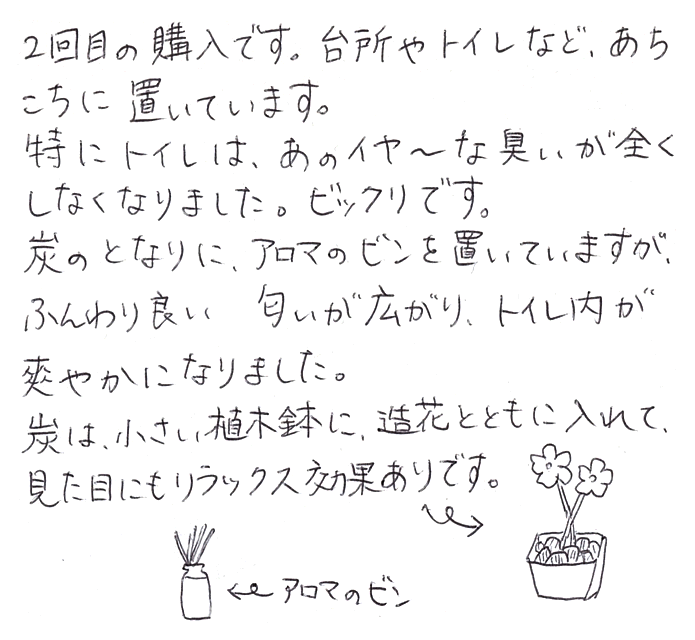 2回目の購入です。台所やトイレなど、あち
こちに置いています。
特にトイレは、あのイヤ～な臭いが全く
しなくなりました。ビックリです。
炭のとなりに、アロマのビンを置いていますが、
ふんわり良い 匂いが広がり、トイレ内が
爽やかになりました。
炭は、小さい植木鉢に、造花とともに入れて、
見た目にもリラックス効果ありです。
アロマのビン